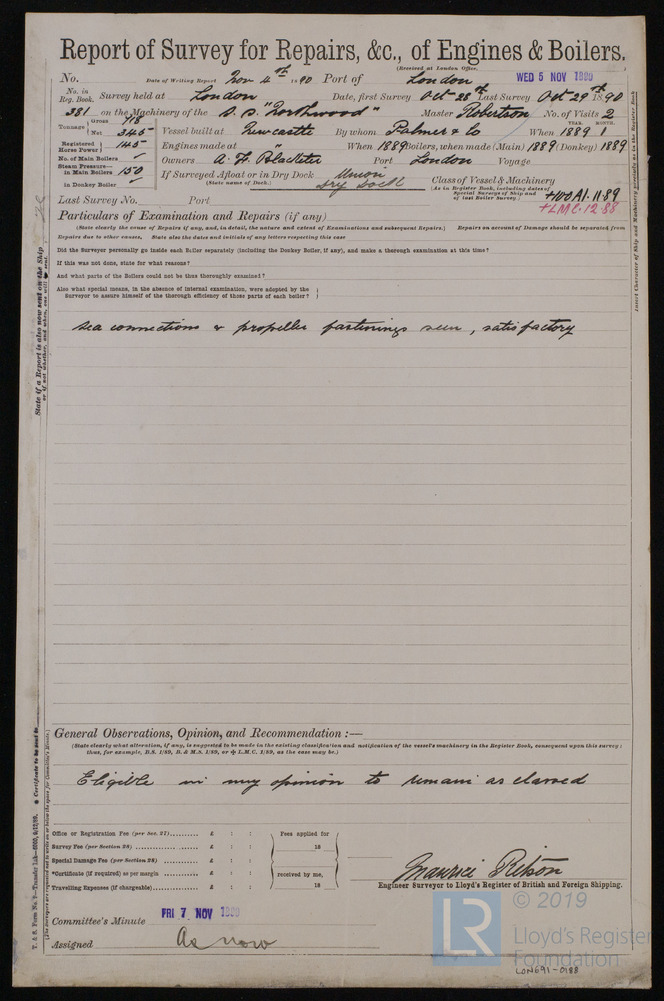 Report of Survey for Repairs, &c., of Engines & Boilers.
(Received at London Office,
No. Date of Writing Report Nov 4th 1890 Port of London WED 5 NOV 1890
No. in Reg. Book. Survey held at London Date, first Survey Oct 28th Last Survey Oct 29th 1890
381 on the Machinery of the S.S. "Northwood" Master Robertson No. of Visits 2
Tonnage Gross 718 Net 345 Vessel built at Newcastle By whom Palmer & Co When 1889 YEAR. MONTH. 1
Registered Horse Power 145 Engines made at " When 1889 Boilers, when made (Main) 1889 (Donkey) 1889
No. of Main Boilers Owners Port London Voyage
Steam Pressure— in Main Boilers 150 If Surveyed Afloat or in Dry Dock Union Dry Dock Class of Vessel & Machinery
in Donkey Boiler (State name of Dock.) (As in Register Book, including dates of Special Surveys of Ship and of last Boiler Survey.) +100A1.11.89
+LMC.12.88
Last Survey No. Port
Particulars of Examination and Repairs (if any)
(State clearly the cause of Repairs if any, and, in detail, the nature and extent of Examinations and subsequent Repairs.) Repairs on account of Damage should be separated from
Repairs due to other causes. State also the dates and initials of any letters respecting this case
Did the Surveyor personally go inside each Boiler separately (including the Donkey Boiler, if any), and make a thorough examination at this time?
If this was not done, state for what reasons?
And what parts of the Boilers could not be thus thoroughly examined?
Also what special means, in the absence of internal examination, were adopted by the
Surveyor to assure himself of the thorough efficiency of those parts of each boiler?
Sea connections & propeller fastenings seen, satisfactory
General Observations, Opinion, and Recommendation :—
(State clearly what alteration, if any, is suggested to be made in the existing classification and notification of the vessel's machinery in the Register Book, consequent upon this survey:
thus, for example, B.S. 1/89, B. & M.S. 1/89, or ✠ L.M.C. 1/89, as the case may be.)
Eligible in my opinion to remain as classed
Office or Registration Fee (per Sec. 27) £ : : Fees applied for
Survey Fee (per Section 28) £ : : 18
Special Damage Fee (per Section 28) £ : :
*Certificate (if required) as per margin £ : : received by me,
Travelling Expenses (if chargeable) £ : : 18
Engineer Surveyor to Lloyd's Register of British and Foreign Shipping.
Committee's Minute FRI 7 NOV 1890
Assigned As now
State if a Report is also now sent on the Ship
or if not whether, and when, one will be sent.
* Certificate to be sent to
Insert Character of Ship and Machinery precisely as in the Register Book
© 2019
LR
Lloyd's Register
Foundation
LON691-0188